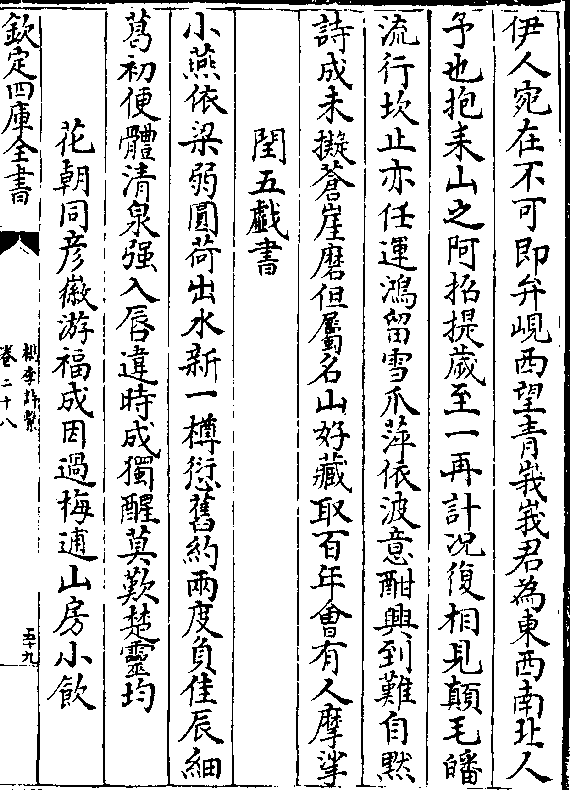 伊人宛在不可即弁峴西望青峩峩君為東西南北人
予也抱耒山之阿招提歲至一再計況復相見顛毛皤
流行坎止亦任運鴻留雪爪萍依波意酣興到難自黙
詩成未擬蒼崖磨但屬名山好藏取百年會有人摩挲
閏五戲書
小燕依梁弱圓荷出水新一樽愆舊約兩度負佳辰細
葛初便體清泉强入唇違時成獨醒莫歎楚靈均
花朝同彦徽游福成因過梅逋山房小飲
欽定四庫全書
檇李詩繫
卷二十八
五十九